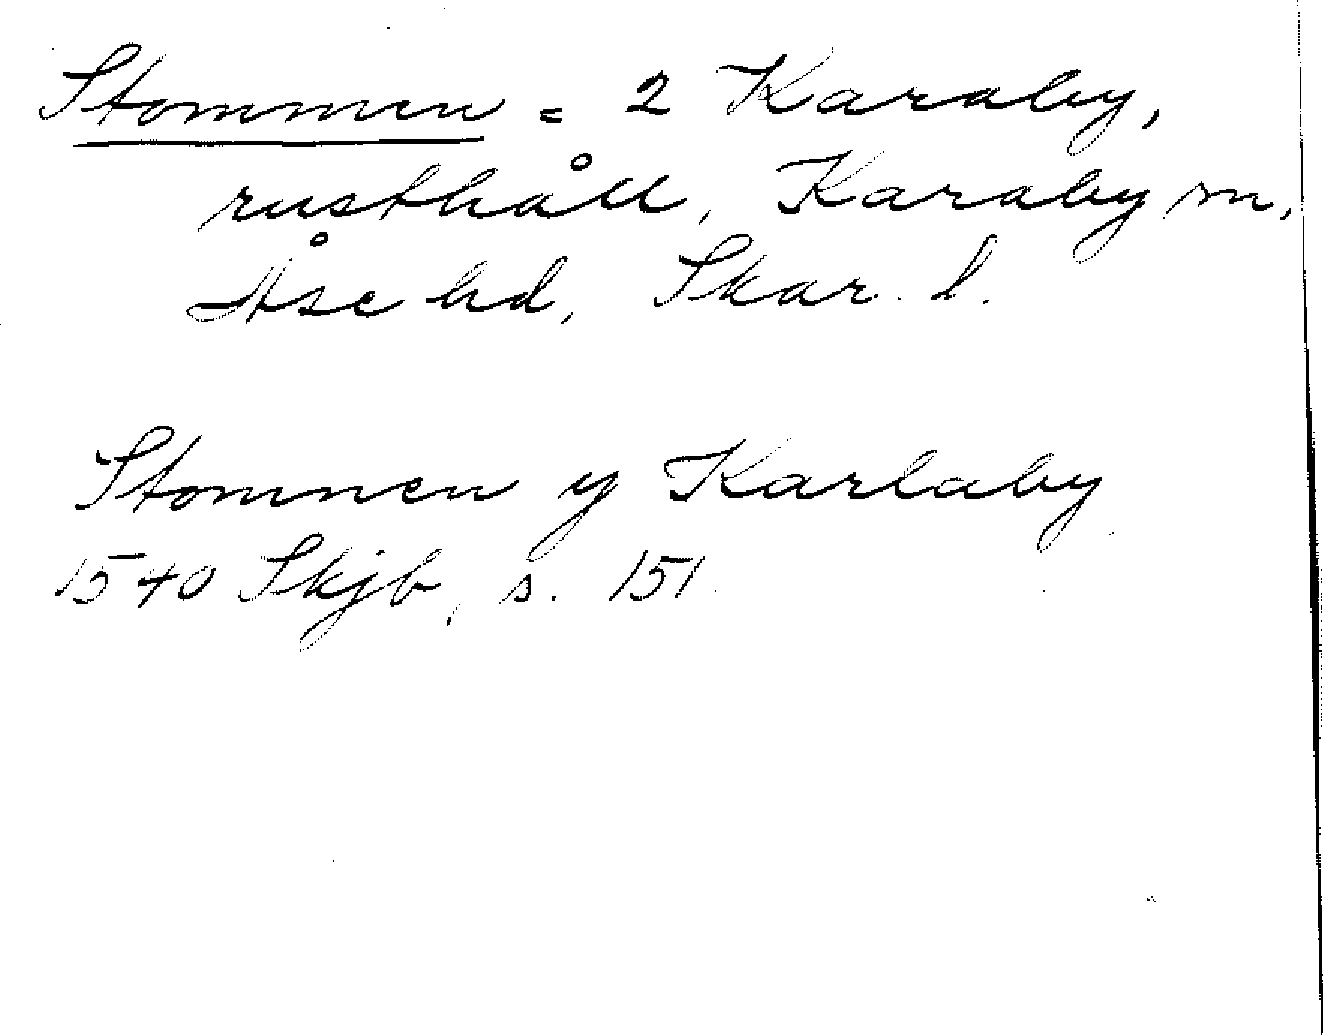 Stommen = 2 Karaby,
rusthåll, Karaby sn,
Åse hd, Skar. l.
Stomnen y Karlaby
1540 Skjb, s. 151.